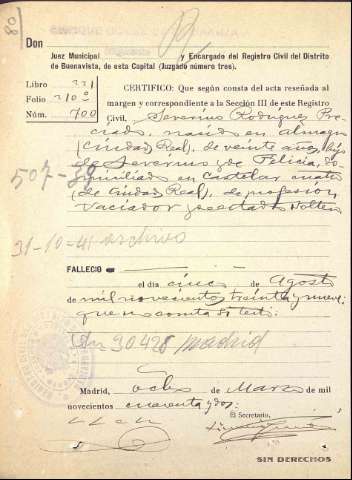 80
Don
Juez Municipal y Encargado del Registro Civil del Distrito
de Buenavista, de esta Capital (Juzgado número tres).
Libro 331
Folio 310
Núm. 700
CERTIFICO: Que según consta del acta reseñada al
margen y correspondiente a la Sección III de este Registro
Civil, Severino Rodríguez Pre
ciado, nacido en Almagro
(Ciudad Real), de veinte años, hijo
de Severino y de Felicia, do
miciliado en Castelar cuatro
(de Ciudad Real), de profesión
Vaciador y de estado Soltero
507-39
31-10-41 archivo
FALLECIO
el día cinco de Agosto
de mil novecientos treinta y nueve
que no consta de testó.
30428 Madrid
Madrid, ocho de Marzo de mil
novecientos cuarenta y dos.
El Secretario,
SIN DERECHOS